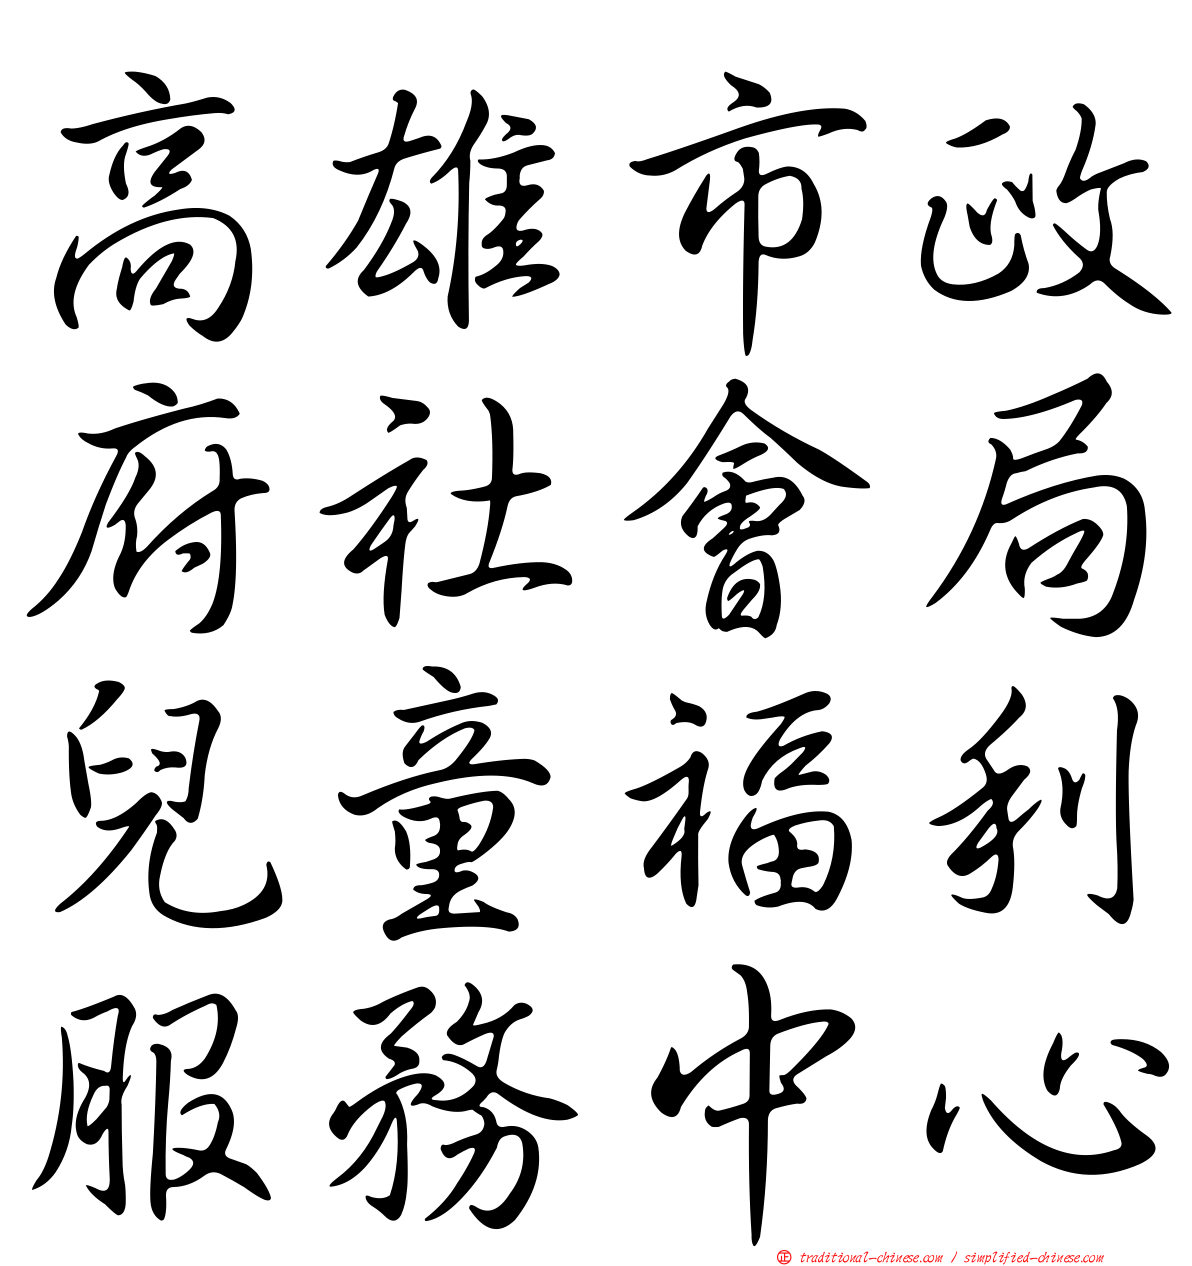 高雄市政
府社會局
兒童福利
服務中心
正 traditional-chinese.com / simplified-chinese.com